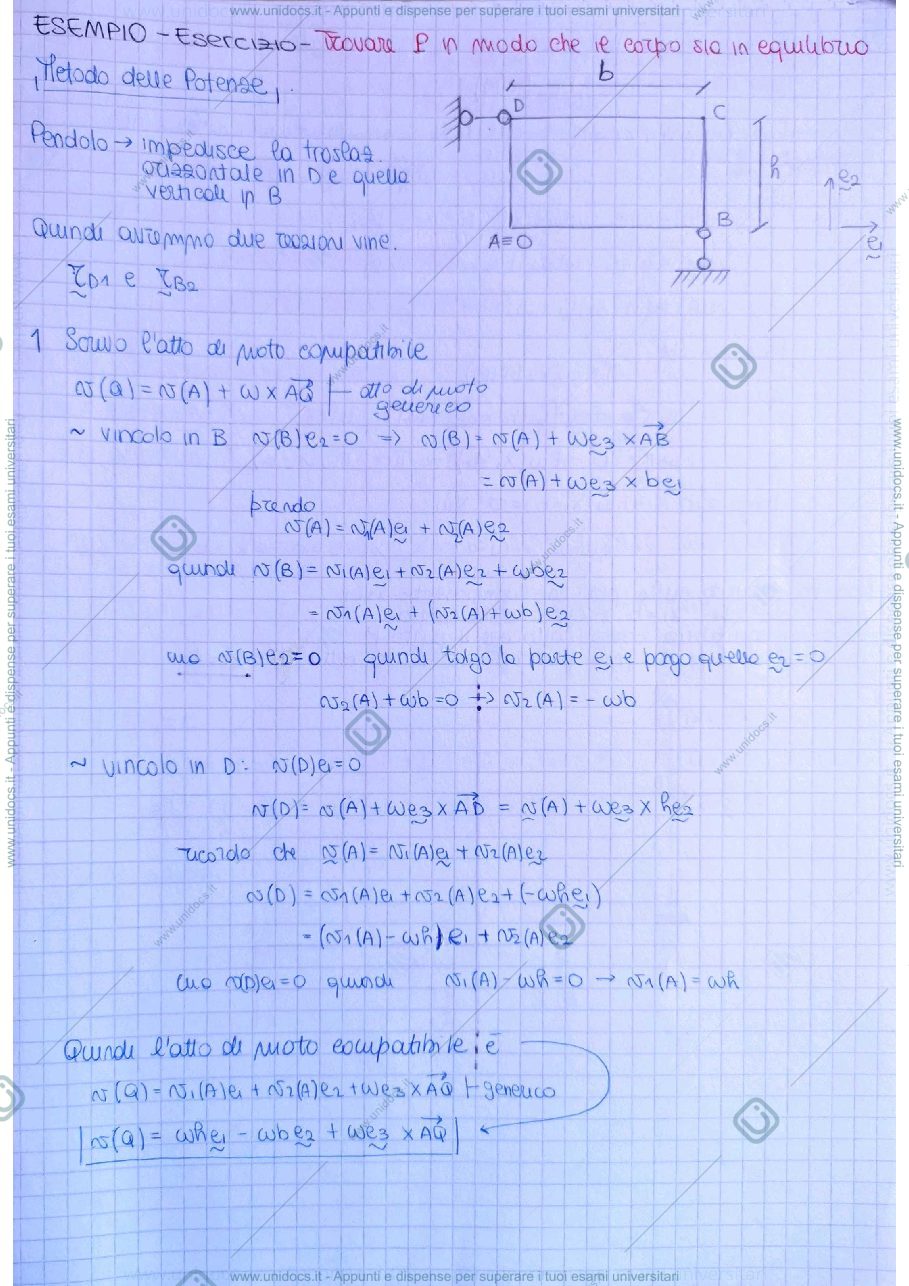 www.unidocs.it - Appunti e dispense per superare i tuoi esami universitari
ESEMPIO - Esercizio - Trovare f in modo che il corpo sia in equilibrio
Metodo delle Potenze
b
D
C
Pendolo → impedisce la traslaz.
orizzontale in D e quella
verticale in B
h
e2
B
e1
A≡O
Quindi avremmo due reazioni vinc.
rD1 e rB2
1 Scrivo l'atto di moto compatibile
v(Q) = v(A) + ω × AQ atto di moto
generico
~ vincolo in B v(B)e2=0 => v(B) = v(A) + ωe3 × AB
= v(A) + ωe3 × be1
prendo
v(A) = v1(A)e1 + v2(A)e2
quindi v(B) = v1(A)e1 + v2(A)e2 + ωbe2
= v1(A)e1 + (v2(A) + ωb)e2
v(B)e2=0 quindi tolgo la parte e1 e pongo quella e2 = 0
v2(A) + ωb = 0 → v2(A) = - ωb
~ vincolo in D: v(D)e1=0
v(D) = v(A) + ωe3 × AD = v(A) + ωe3 × he2
ricordo che v(A) = v1(A)e1 + v2(A)e2
v(D) = v1(A)e1 + v2(A)e2 + (-ωhe1)
= (v1(A) - ωh) e1 + v2(A)e2
v(D)e1=0 quindi v1(A) - ωh = 0 → v1(A) = ωh
Quindi l'atto di moto compatibile è
v(Q) = v1(A)e1 + v2(A)e2 + ωe3 × AQ generico
v(Q) = ωhe1 - ωbe2 + ωe3 × AQ
www.unidocs.it - Appunti e dispense per superare i tuoi esami universitari
www.unidocs.it - Appunti e dispense per superare i tuoi esami universitari
www.unidocs.it - Appunti e dispense per superare i tuoi esami universitari